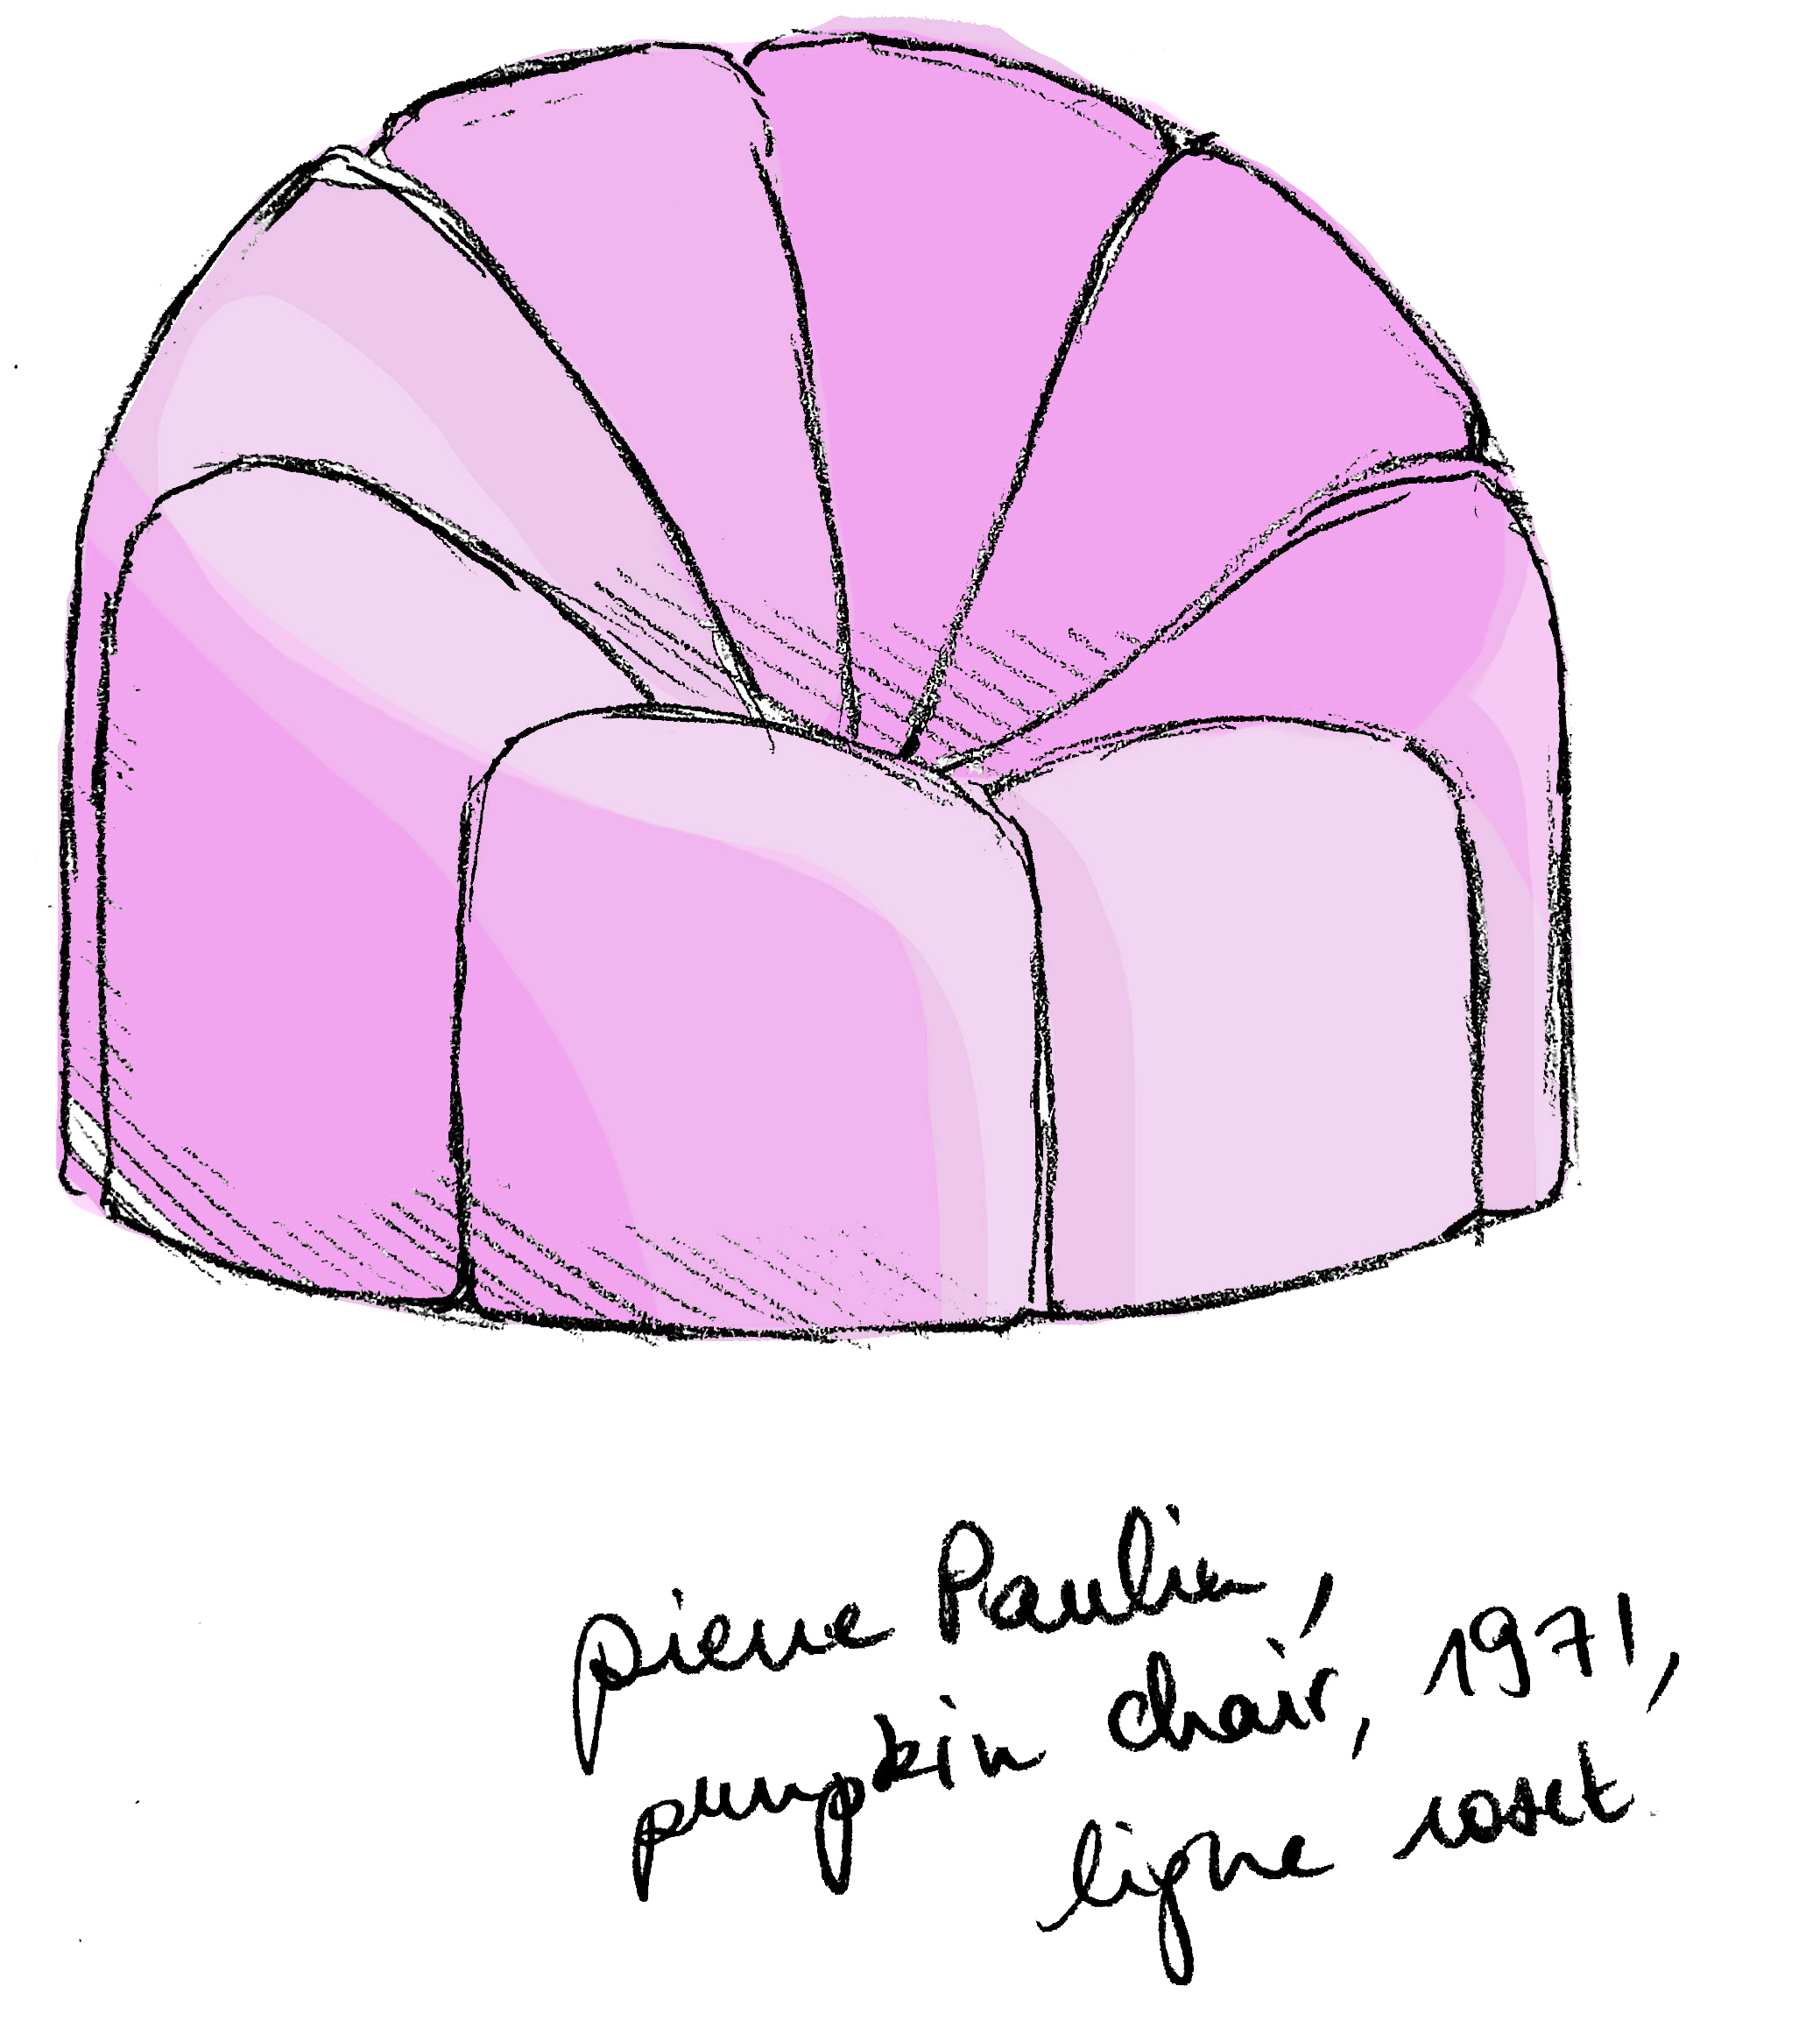 pierre Paulin,
pumpkin chair, 1971,
ligne roset